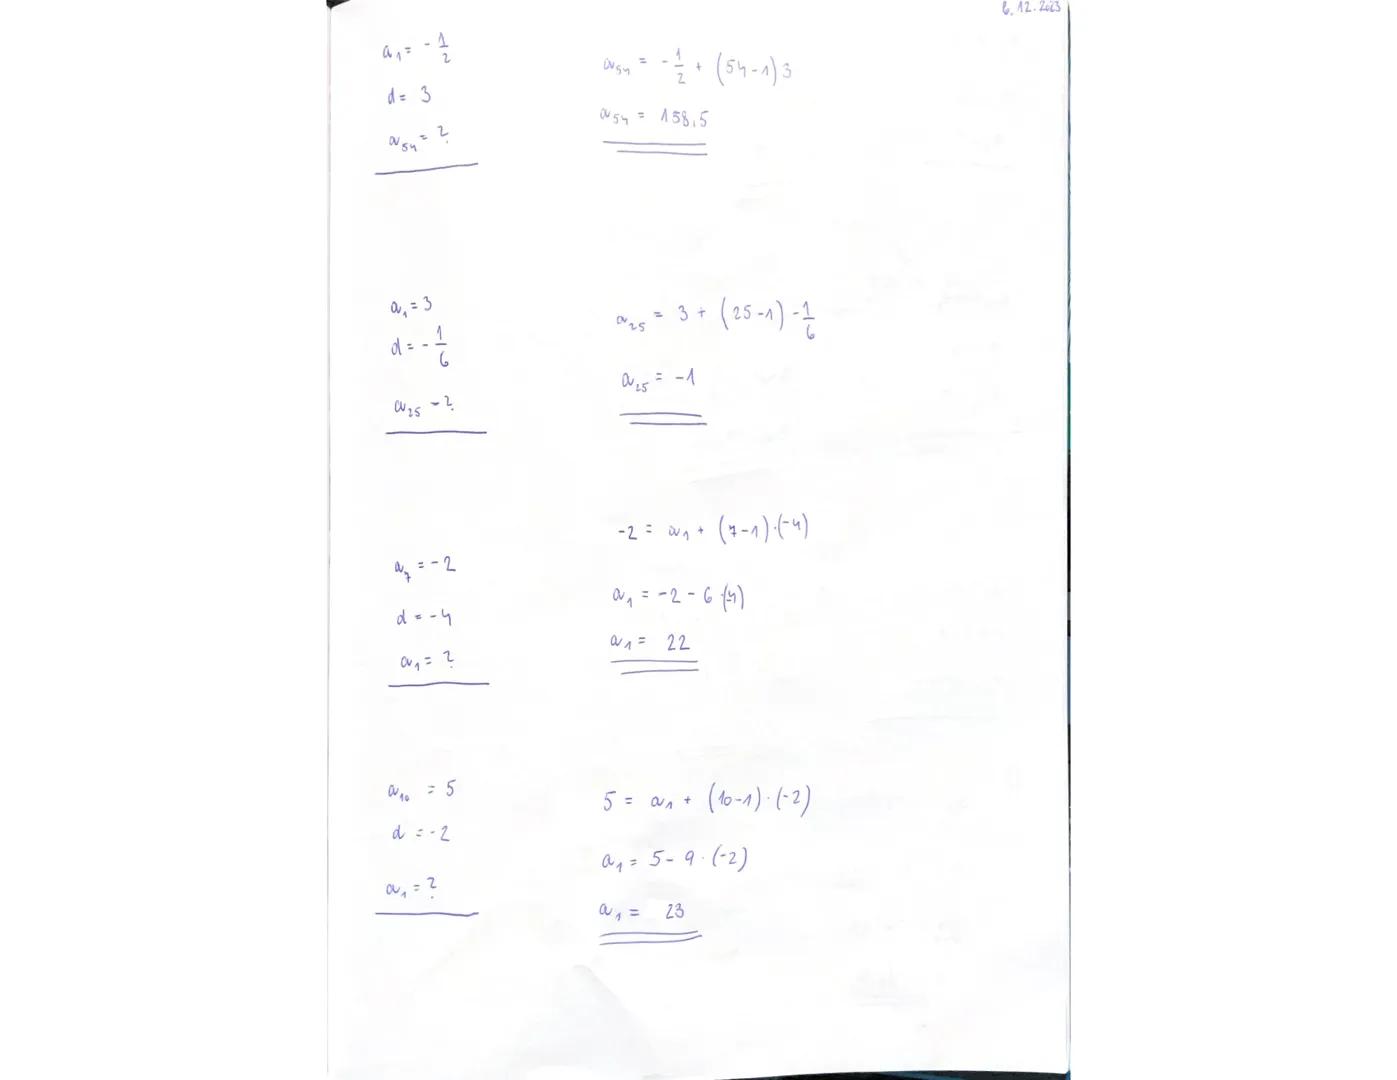 6. 12. 2023
a₁ = - 1/2
d = 3
a₅₄ = ?
a₅₄ = - 1/2 + (54-1) 3
a₅₄ = 158,5
a₁ = 3
d = - 1/6
a₂₅ - ?
a₂₅ = 3 + (25-1) - 1/6
a₂₅ = -1
a₇ = -2
d = -4
a₁ = ?
-2 = a₁ + (7-1)·(-4)
a₁ = -2 - 6·(-4)
a₁ = 22
a₁₀ = 5
d = -2
a₁ = ?
5 = a₁ + (10-1)·(-2)
a₁ = 5 - 9·(-2)
a₁ = 23